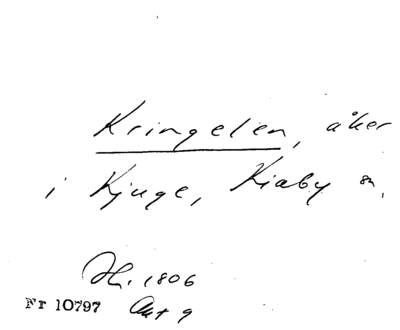 Kringelen, åker
i Kjuge, Kiaby sn,
Hl. 1806
Fr 10797 Akt 9